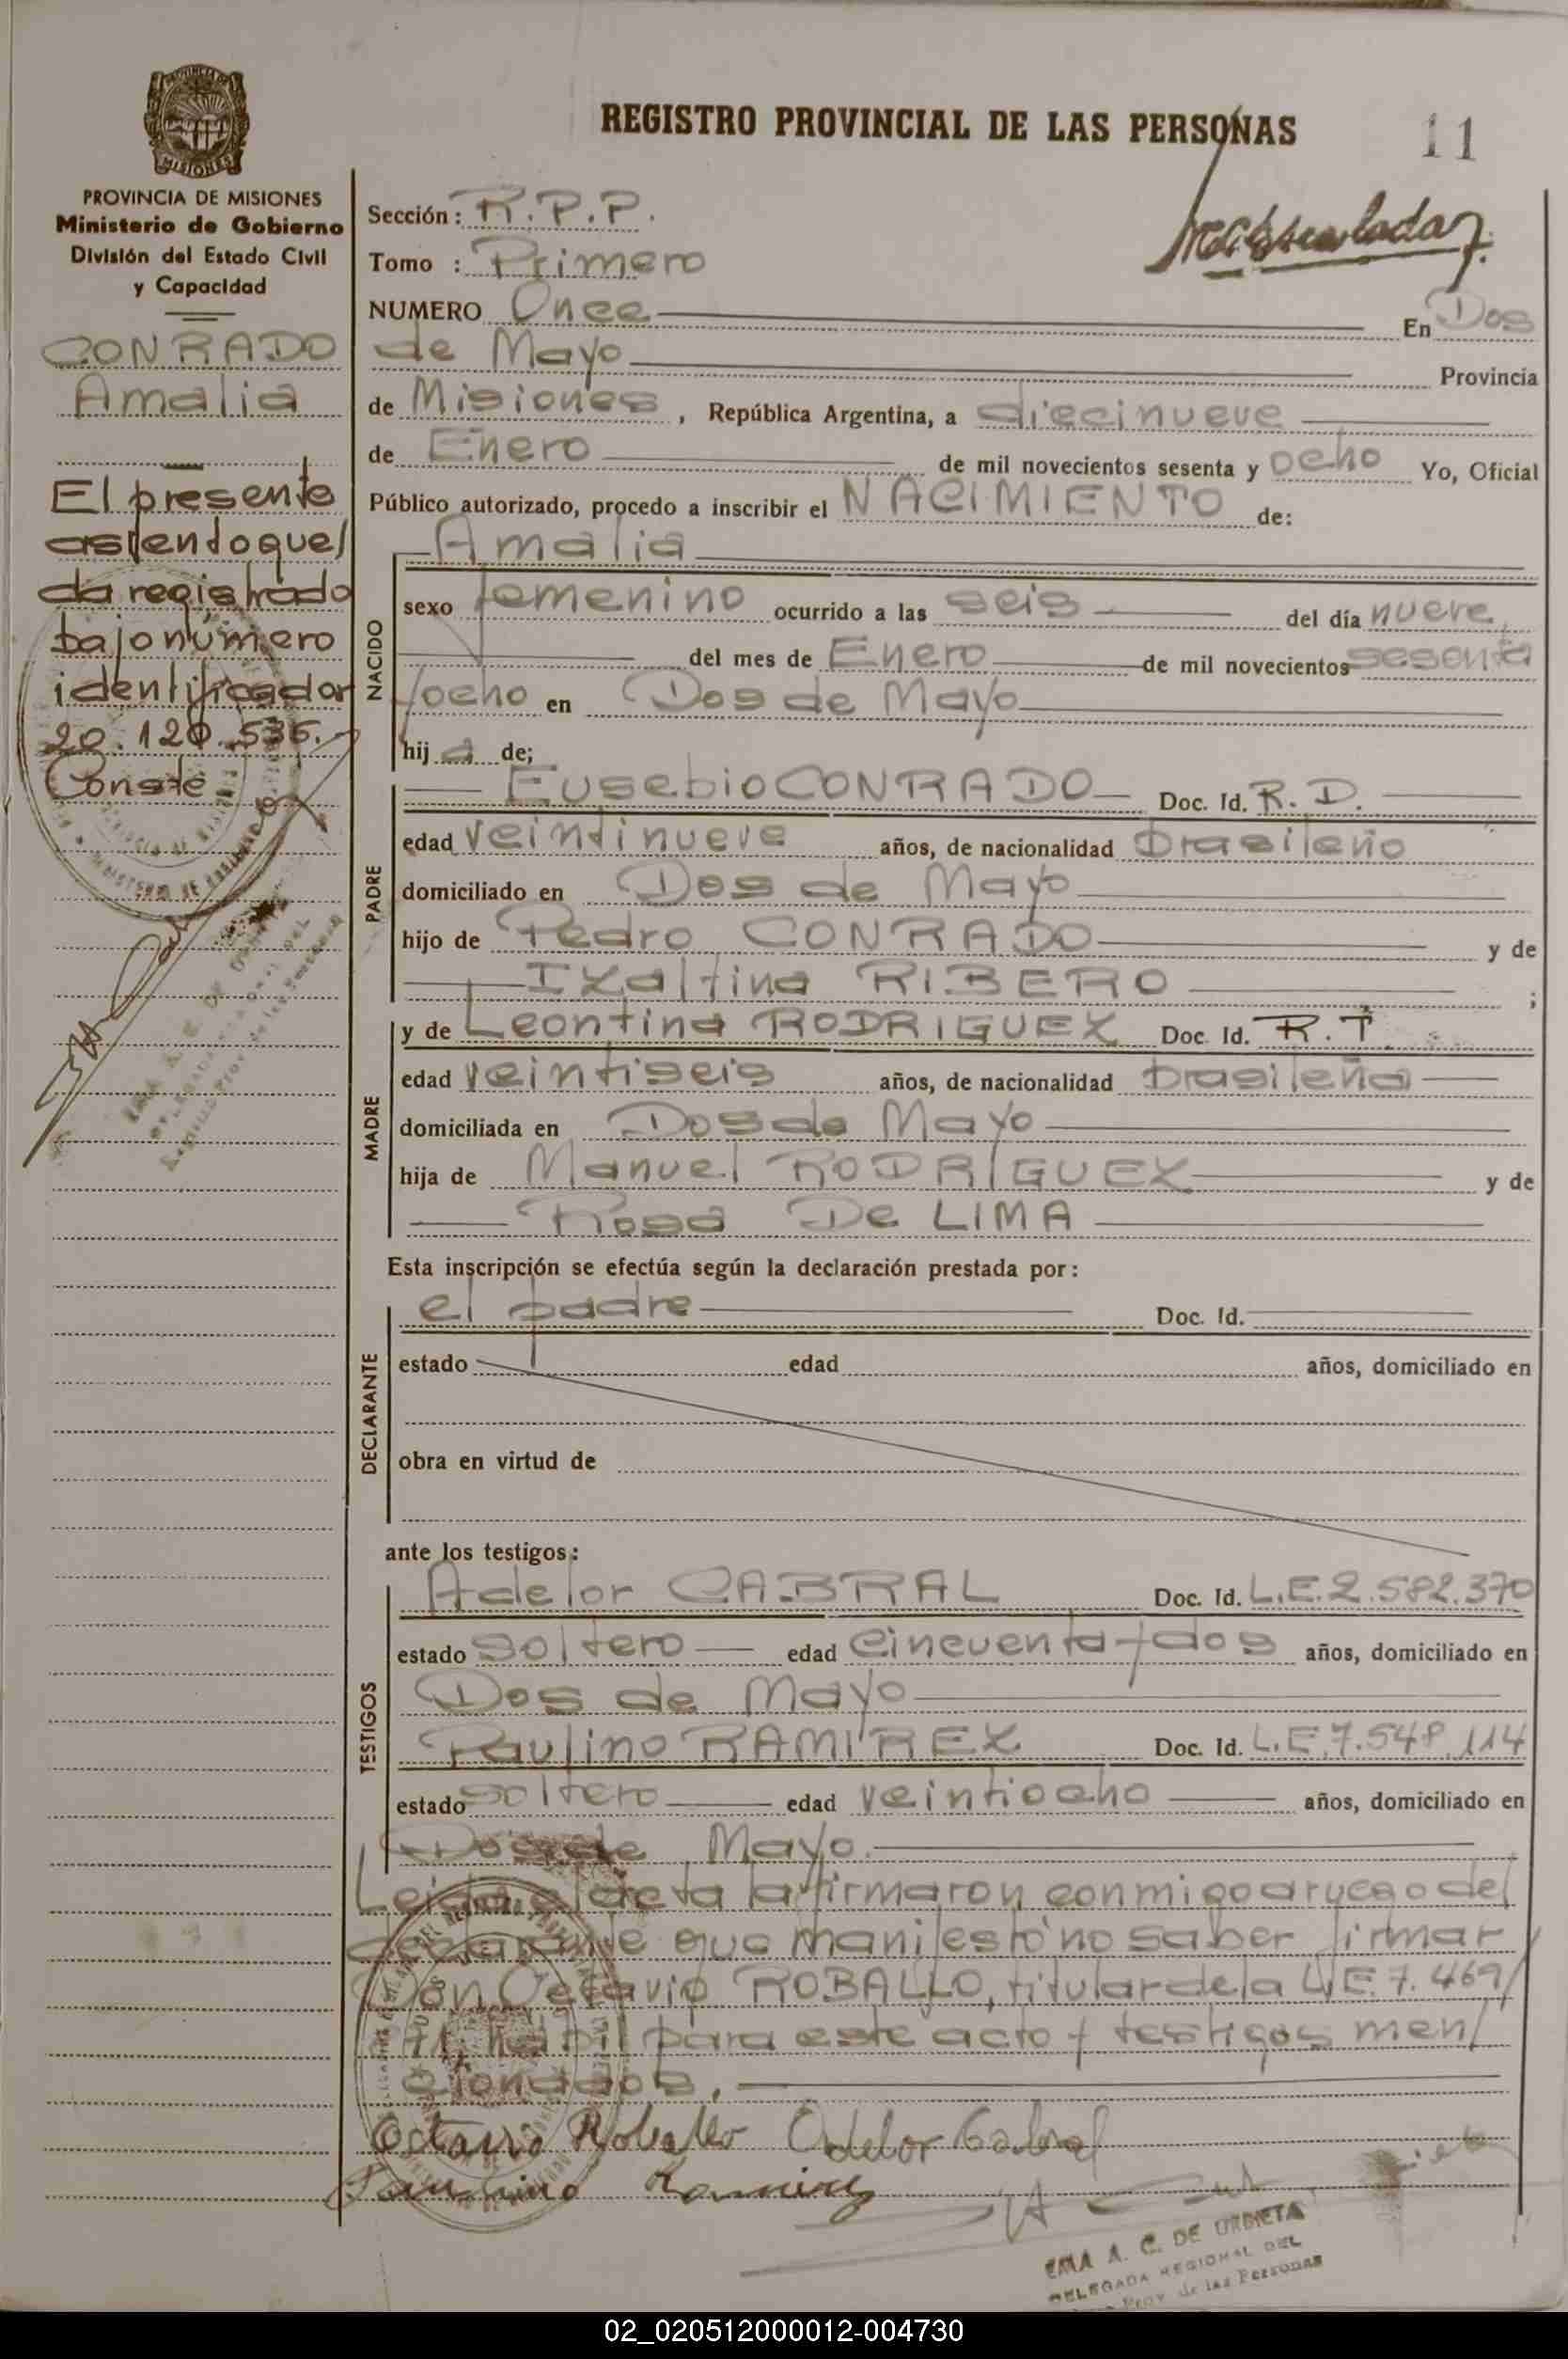 REGISTRO PROVINCIAL DE LAS PERSONAS
11
PROVINCIA DE MISIONES
Ministerio de Gobierno
División del Estado Civil
y Capacidad
CONRADO
Amalia
El presente
asiento que/
da registrado
bajo número
identificador
20.120.536.-
Conste-
Sección: R.P.P.
Tomo : Primero
NUMERO Once
En Dos
de Mayo Provincia
de Misiones, República Argentina, a diecinueve
de Enero de mil novecientos sesenta y ocho Yo, Oficial
Público autorizado, procedo a inscribir el NACIMIENTO de:
NACIDO
Amalia
sexo femenino ocurrido a las seis del día nueve
del mes de Enero de mil novecientos sesenta
/ocho en Dos de Mayo
hija de;
PADRE
Eusebio CONRADO Doc. Id. R. D.
edad veintinueve años, de nacionalidad brasileño
domiciliado en Dos de Mayo
hijo de Pedro CONRADO y de
Ixaltina RIBERO ;
MADRE
y de Leontina RODRIGUEZ Doc. Id. R. T.
edad veintiseis años, de nacionalidad brasileña
domiciliada en Dos de Mayo
hija de Manuel RODRIGUEZ y de
Rosa De LIMA
Esta inscripción se efectúa según la declaración prestada por:
DECLARANTE
el padre Doc. Id.
estado edad años, domiciliado en
obra en virtud de
ante los testigos:
TESTIGOS
Adelor CABRAL Doc. Id. L.E.2.582.370
estado soltero edad cincuenta y dos años, domiciliado en
Dos de Mayo
Paulino RAMIREZ Doc. Id. L.E.7.548.114
estado soltero edad veintiocho años, domiciliado en
Dos de Mayo.
Leida el acta la firmaron conmigo a ruego del
declarante que manifestó no saber firmar
Don Octavio ROBALLO, titular de la L.E.7.469/
habil para este acto y testigos men/
cionados.
Octavio Roballo Adelor Cabral
Paulino Ramirez
EMA A. C. DE URBIETA
DELEGADA REGIONAL DEL
Prov. de las Personas
02_020512000012-004730